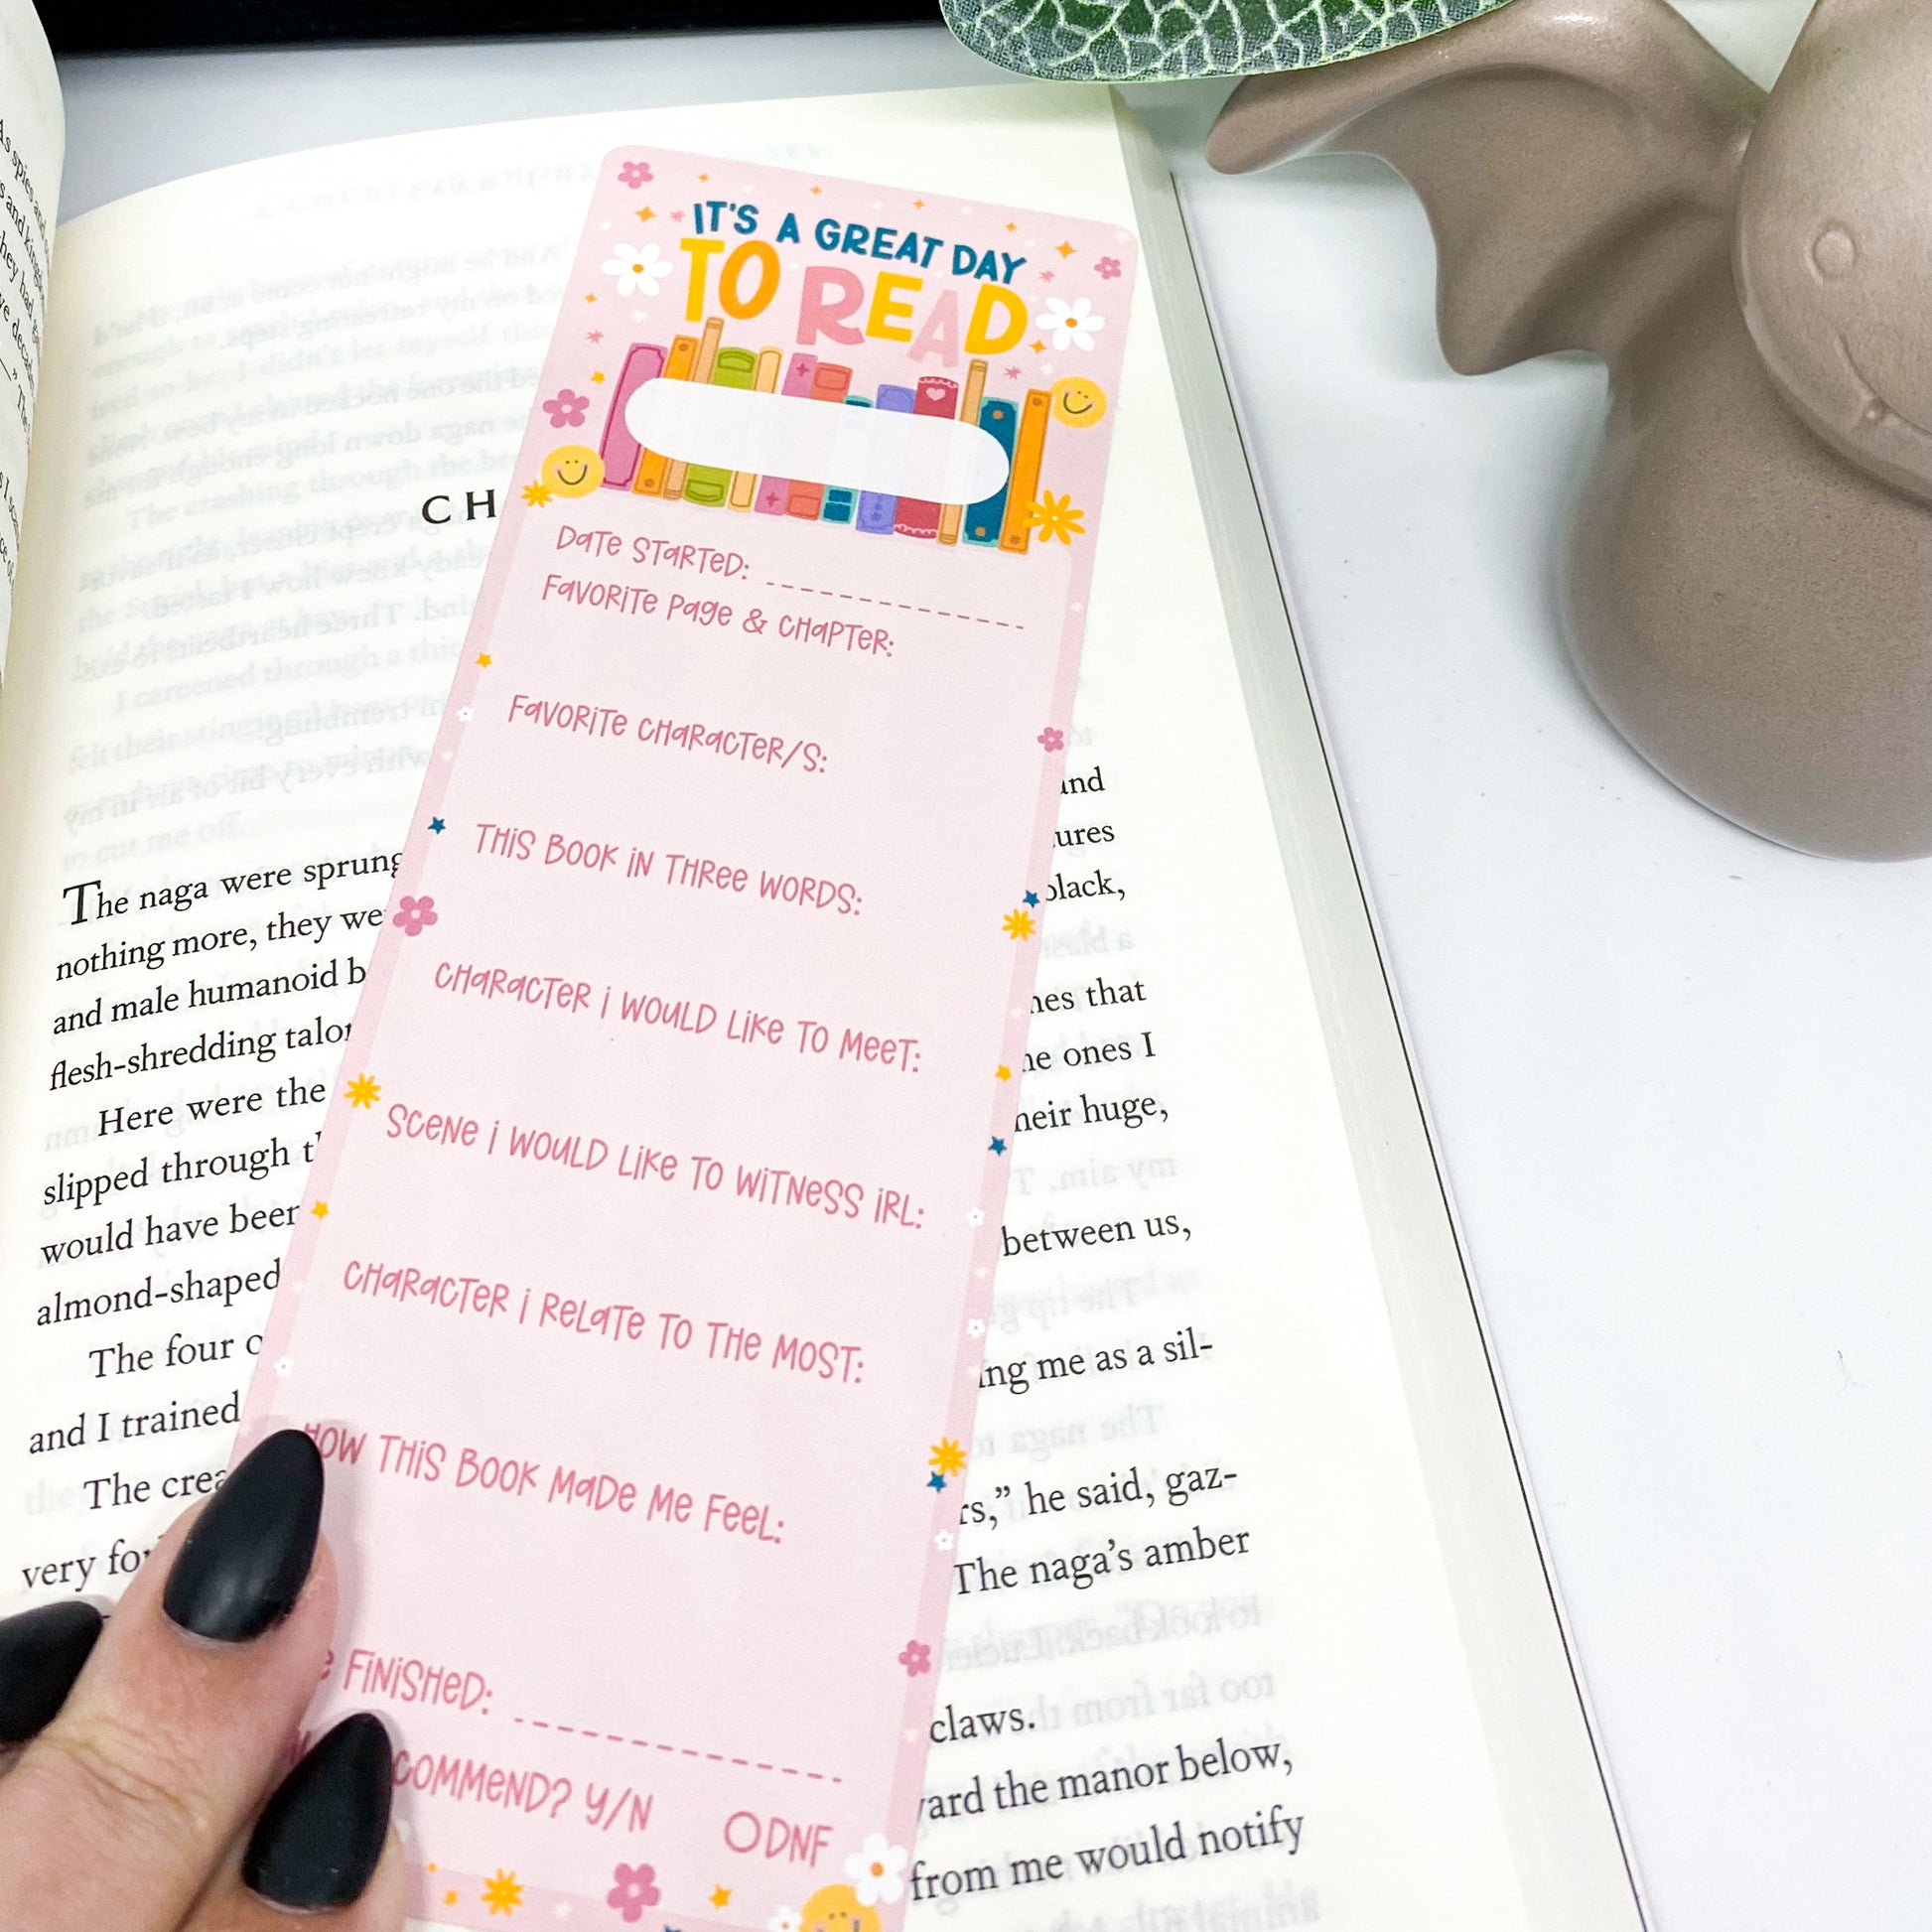 IT'S A GREAT DAY
TO READ
DATE STARTED:
FAVORITE PAGE & CHAPTER:
FAVORITE CHARACTER/S:
THIS BOOK IN THREE WORDS:
CHARACTER I WOULD LIKE TO MEET:
SCENE I WOULD LIKE TO WITNESS IRL:
CHARACTER I RELATE TO THE MOST:
HOW THIS BOOK MADE ME FEEL:
FINISHED:
COMMEND? Y/N DNF
CH
The naga were sprung
nothing more, they we
and male humanoid b
flesh-shredding talon
Here were the
slipped through t
would have been
almond-shaped
The four o
and I trained
The crea
very fo
and
ures
black,
nes that
he ones I
heir huge,
between us,
ing me as a sil-
rs,” he said, gaz-
The naga’s amber
claws.
ard the manor below,
from me would notify